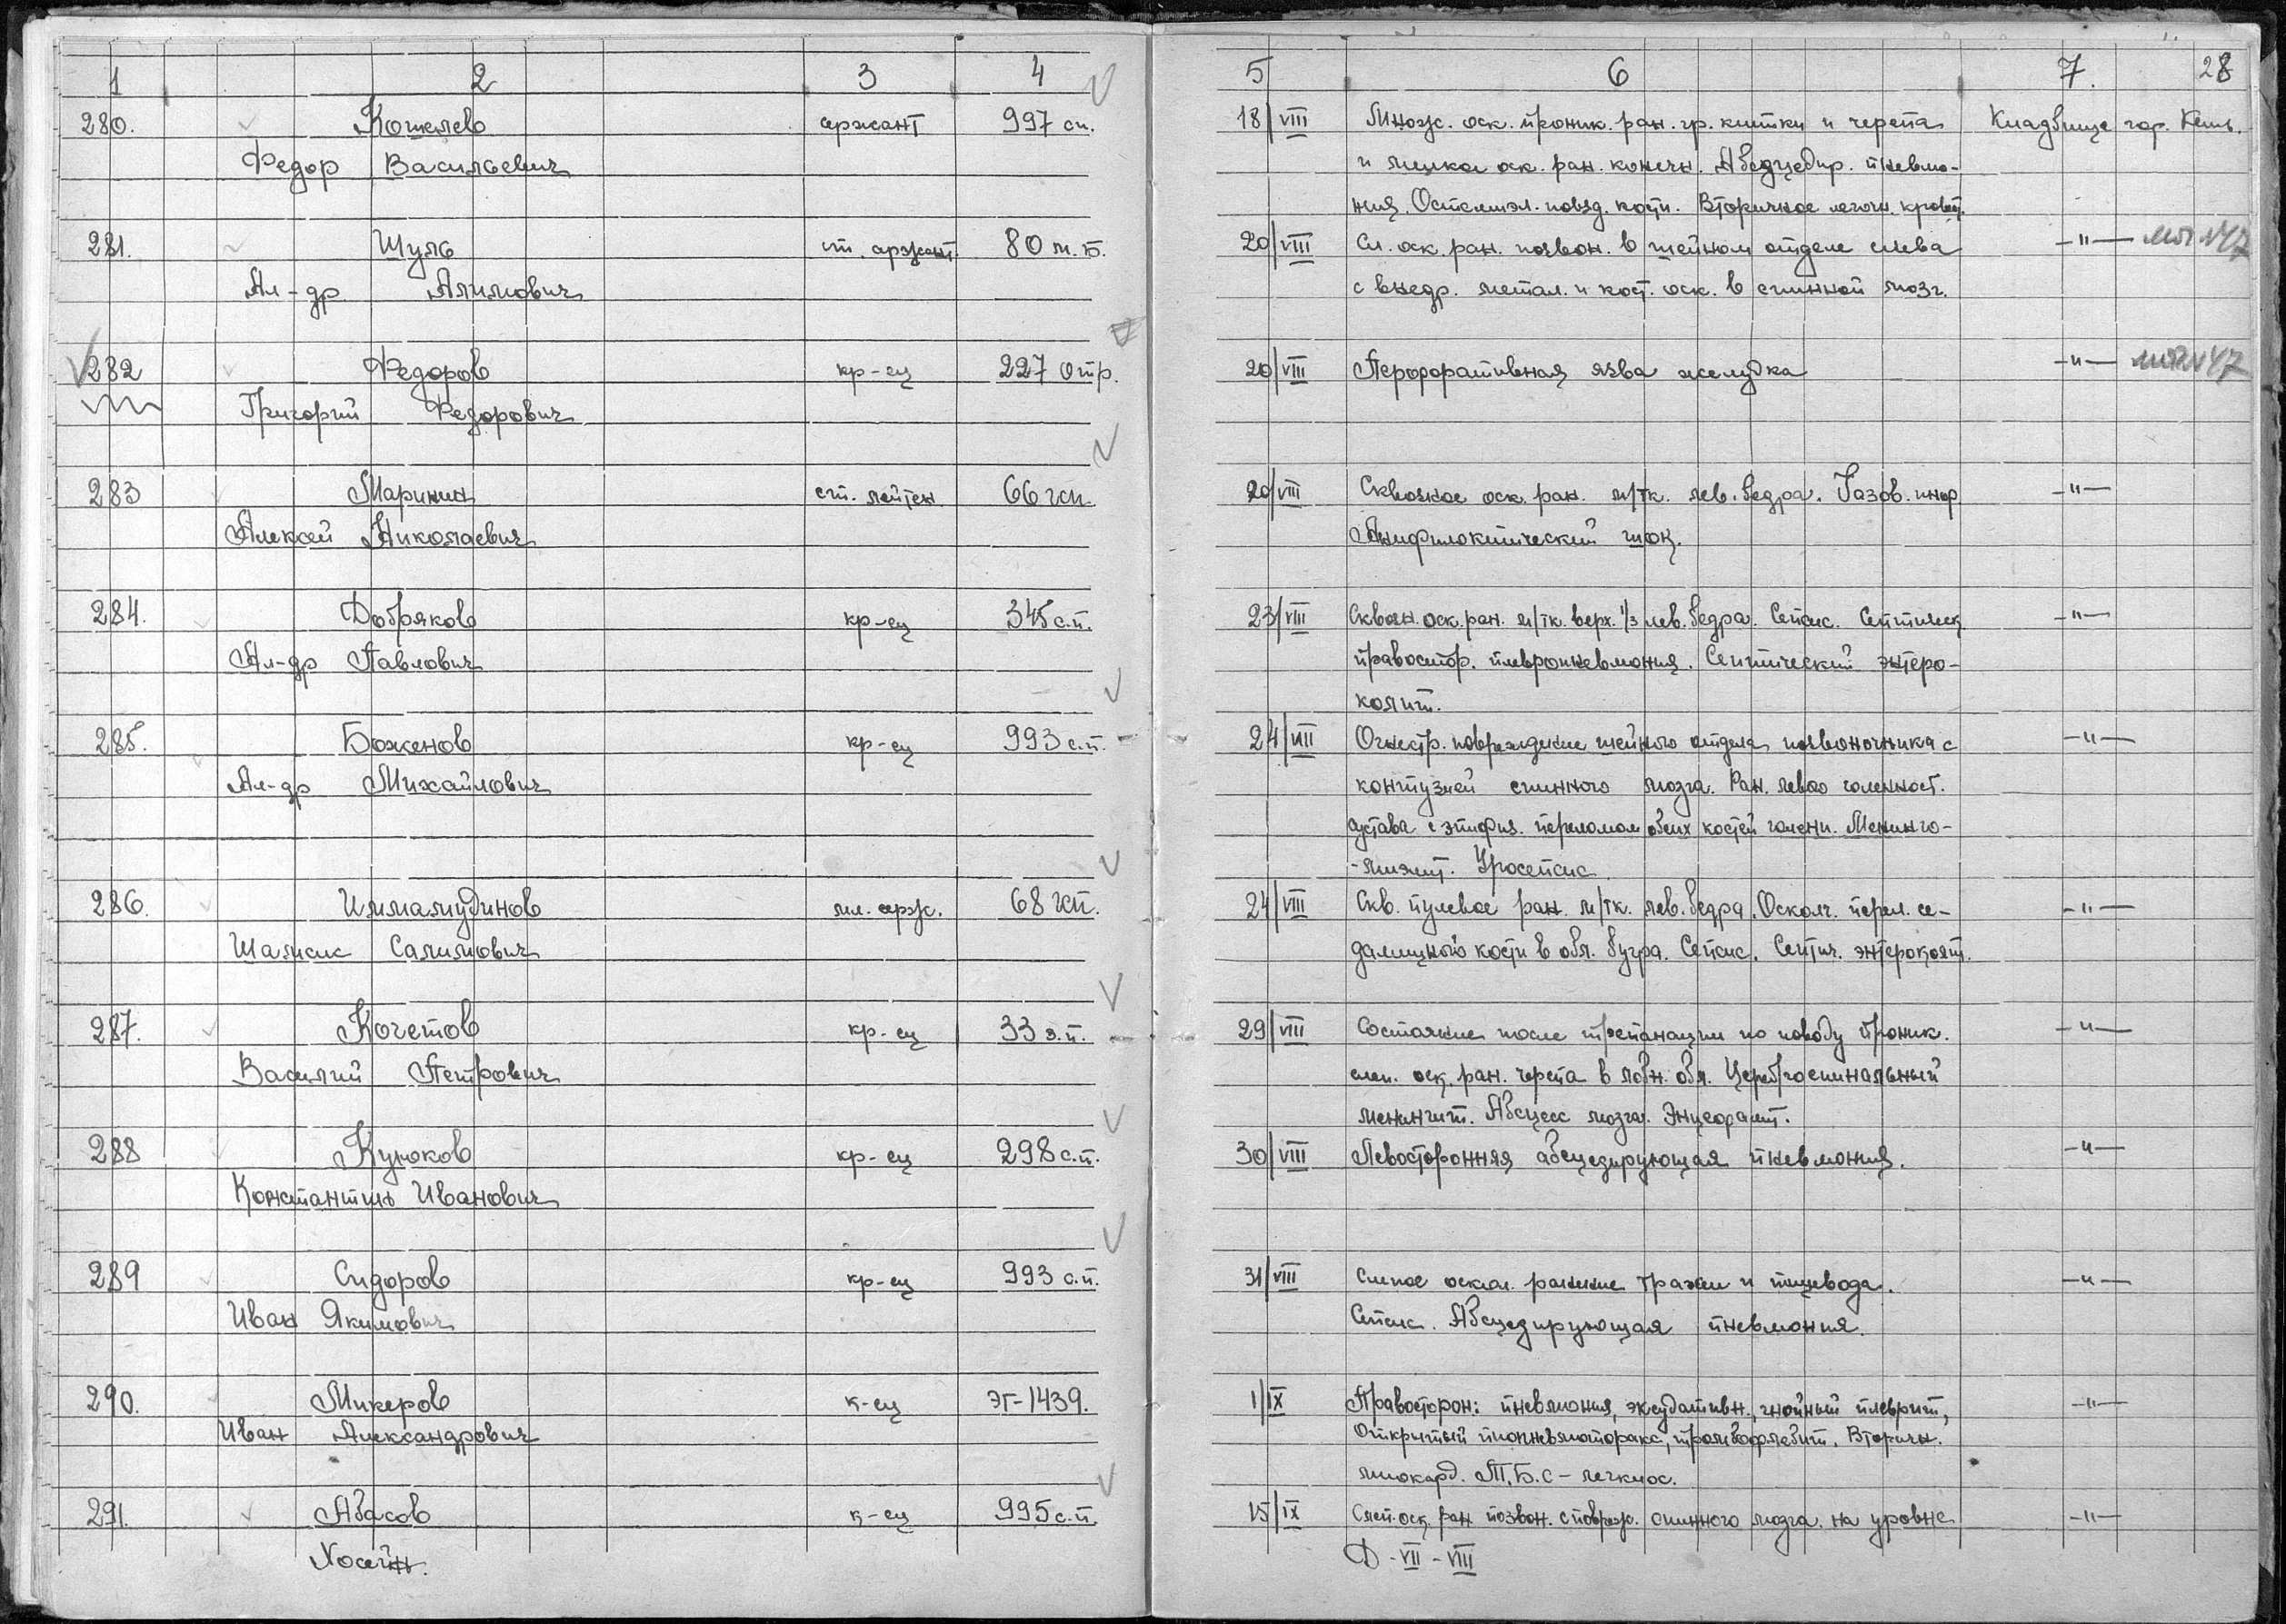 1 2 3 4 5 6 7. 28
280. Кошелев сержант 997 сп. 18/VIII Множ. оск. проник. ран. гр. клетки и черепа Кладбище гор. Кемь.
Федор Васильевич и мелкое оск. ран. конечн. Абсцедир. пневмо-
ния. Остеомиэл. повзд. кости. Вторичное легочн. кровот.
281. Шуль ст. сержант 80 м.б. 20/VIII Сл. оск. ран. позвон. в шейном отделе слева —"—
Ал-др Алимович с внедр. метал. и кост. оск. в спинной мозг.
282 Федоров кр-ец 227 отр. 20/VIII Перфоративная язва желудка —"—
Григорий Федорович
283 Маринин ст. лейтен. 66 гсп. 20/VIII Сквозное оск. ран. м/тк. лев. бедра. Газов. инф —"—
Алексей Николаевич Анафилактический шок.
284. Добряков кр-ец 345 с.п. 23/VIII Сквозн. оск. ран. м/тк. верх. 1/3 лев. бедра. Сепсис. Септическ —"—
Ал-др Павлович правостор. плевропневмония. Септический энтеро-
колит.
285. Боженов кр-ец 993 с.п. 24/VIII Огнестр. повреждение шейного отдела позвоночника с —"—
Ал-др Михайлович контузией спинного мозга. Ран. левого голеност.
сустава с эпифиз. переломом обеих костей голени. Менинго-
-миэлит. Уросепсис.
286. Иммамудинов мл. серж. 68 гсп. 24/VIII Скв. пулевое ран. м/тк. лев. бедра. Осколч. перел. се- —"—
Шамсис Салимович далищного кости в обл. бугра. Сепсис. Септич. энтероколит.
287. Кочетов кр-ец 33 з.п. 29/VIII Состояние после трепанации по поводу проник. —"—
Василий Петрович слеп. оск. ран. черепа в лобн. обл. Цереброспинальный
менингит. Абсцесс мозга. Энцефалит.
288 Куликов кр-ец 298 с.п. 30/VIII Левосторонняя абсцедирующая пневмония. —"—
Константин Иванович
289 Сидоров кр-ец 993 с.п. 31/VIII Слепое оскол. ранение трахеи и пищевода. —"—
Иван Якимович Сепсис. Абсцедирующая пневмония.
290. Микеров к-ец ЭГ-1439. 1/IX Правосторон: пневмония, эксудативн., гнойный плеврит, —"—
Иван Александрович Открытый пиопневмоторакс, тромбофлебит. Вторичн.
миокард. Т.Б.С – легких.
291. Абасов к-ец 995 с.п. 15/IX Слеп. оск. ран. позвон. с повреж. спинного мозга на уровне —"—
Хосейн. D - VII - VIII